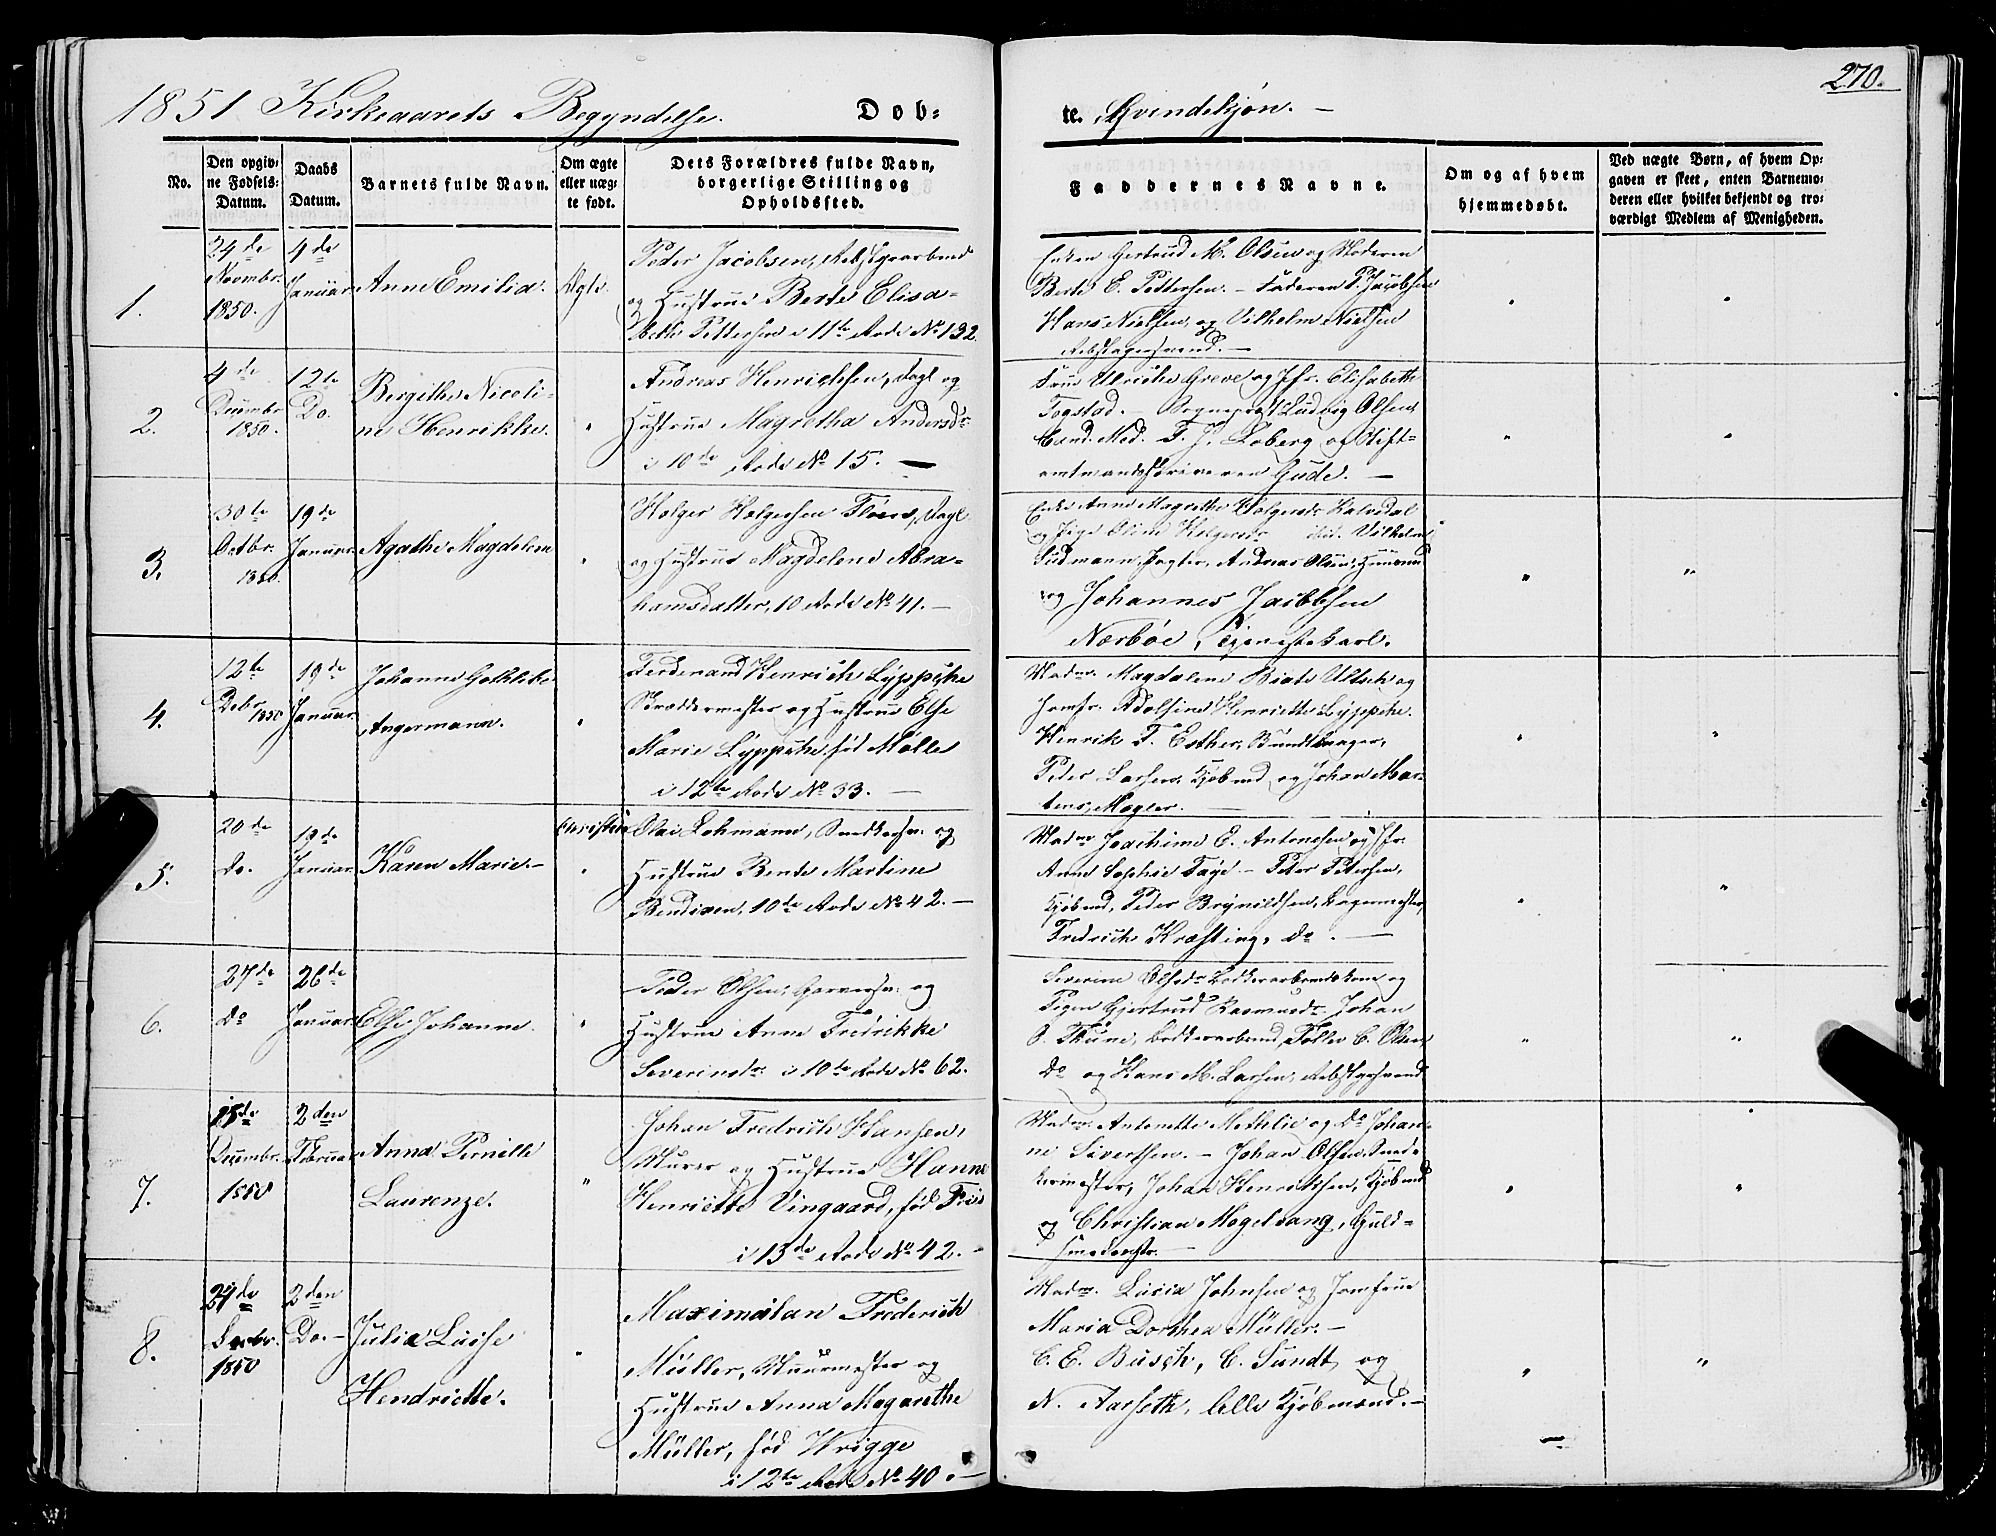 270.
1851 Kirkeaarets Begyndelse. Døb-
te. Qvindekjøn. –
No.
Den opgiv-
ne Fødsels-
Datum.
Daabs
Datum.
Barnets fulde Navn.
Om ægte
eller uæg-
te født.
Dets Forældres fulde Navn,
borgerlige Stilling og
Opholdssted.
Faddernes Navne.
Om og af hvem
hjemmedøbt.
Ved uægte Børn, af hvem Op-
gaven er skeet, enten Barnemo-
deren eller hvilket bekjendt og tro-
værdigt Medlem af Menigheden.
1.
24de
Novembr.
1850.
4de
Januar
Anne Emilie.
Ægte.
Peder Jacobsen,
og Hustrue Berte Elisa-
beth Pettersen i 11te Rode No 132.
Enken Gertrud M. Olsen og Moderen
Berte E. Pettersen. – Faderen P. Jacobsen
Hans Nielsen, og Vilhelm Nielsen
Rebslagersvend. –
2.
4de
Decembr.
1850.
12te
Do.
Bergithe Nicoli-
ne Henrikke.
"
Andreas Henrichsen, Dagl. og
Hustrue Magretha Andersdr.
i 10de Rode No 15. –
Frue Ulriche Greve og Jfr. Elisabeth
Fogstad. – Sogneprest Ludvig Olsen
Cand. Med. T. J. Loberg og Stift-
amtmandsskriveren Gude. –
3.
30te
Octbr.
1850.
19de
Januar.
Agathe Magdelene
"
Holger Holgersen Floen, Dagl.
og Hustrue Magdelene Abra-
hamsdatter, 10 Rode No 41. –
Enke Anne Magrethe Holgersdr. Kalvedal
og Pige Oline Holgersdr. Vilhelm
Sudmann, Andreas Olsen,
og Johannes Jacobsen
Nærbøe, Tjenestekarl.
4.
12te
Debr. 1850
19de
Januar.
Johanne
Angermann.
"
Ferdinand Henrich Lyppche
Skræddermester og Hustrue Else
Marie Lyppche, fød Møller
i 12te Rode No 33. –
Madm. Magdalene Beate Ulsch og
Jomfr. Adolfine Henriette Lyppche.
Henrik T. Esther, Bundtmager,
Peder Larsen, Kjøbmd. og Johan Mar-
tens, Mægler. –
5.
20de
Do.
19de
Januar.
Karen Marie. –
"
Olai Lohmann, Snedkersv. og
Hustrue Bente Martine
Bendixen, 10de Rode No 42. –
Madm. Joachime E. Antonesen og Jfr.
Anne Sophie Faye – Peter Petersen,
Kjøbmd, Peder Brynildsen, Bagermester,
Fredrich Kræfting, Do. –
6.
27de
Do
26de
Januar.
Else Johanne.
"
Peder Olsen, Garversv. og
Hustrue Anne Fredrikke
Severinsdr. i 10de Rode No 62.
Severine Olsdr. Bødkersvendskone og
Pigen Gjertrud Rasmusdr. Johan
O. Thune, Bødkersvend, Tollev C. Olsen
Do og Hans M. Larsen, Rebslgersvend
7.
15de
Decembr.
1850
2den
Februar
Anna Pernille
Laurenze.
"
Johan Fredrich Hansen,
Murer og Hustrue Hanne
Henriette Vingaard, fød Friis
i 13de Rode No 42. –
Madm. Antonette Methlie og Do Johan-
ne Sivertsen. – Johan Olsen, Sned-
kermester, Johan Henrichsen, Kjøbmd
og Christian Møgelvang, Guld-
smedmstr. –
8.
24de
Decbr.
1850
2den
Do. –
Julia Luise
Hendriette.
"
Maximilan Frederich
Müller, Muurmester og
Hustrue Anna Magarethe
Müller, fød Wrigge
i 12te Rode No 40. –
Madm. Lucia Johnsen og Jomfrue
Maria Dorthea Müller. –
C. E. Busch, C. Sundt og
N. Aarseth, Alle Kjøbmænd. –